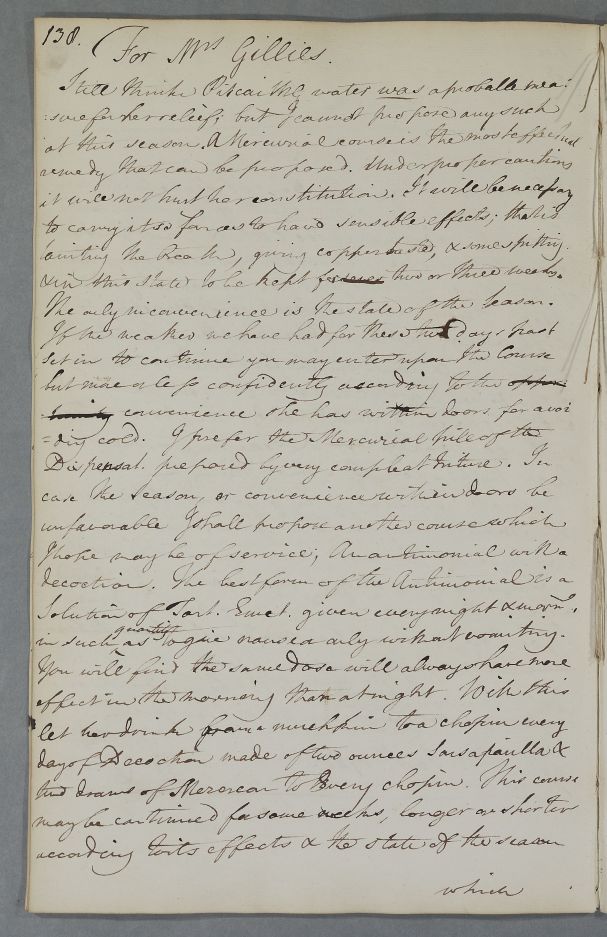 138.
For Mrs Gillies.
I still think Pitcaithly water was a probable mea:
:sure for her relief; but I cannot propose any such
at this season. A Mercurial course is the most effectual
remedy that can be proposed. Under proper cautions
it will not hurt her constitution. It will be necessary
to carry it so far as to have sensible effects; that is
tainting the breath, giving copper taste, & some spitting.
& in this state to be kept for two or three weeks.
The only inconvenience is the state of the season.
If the weather we have had for these two days past
set in to continue you may enter upon the Course
but more or less confidently according to the oppor
tunity convenience she has within doors for avoi
=ding cold. I prefer the Mercurial pill of the
Dispensat. prepared by very compleat triture. In
case the season, or convenience within doors be
unfavorable I shall propose another course which
I hope may be of service; An antimonial with a
decoction. The best form of the Antimonial is a
Solution of Tart. Emet. given every night & morng.
in such quantity as to give nausea only without vomiting.
You will find the same dose will always have more
effect in the morning than at night. With this
let her drink from a mutchkin to a chopin every
day of Decoction made of two ounces Sarsaparilla &
two drams of Mezereon to every chopin. This course
may be continued for some weeks, longer or shorter
according to its effects & the state of the season
which